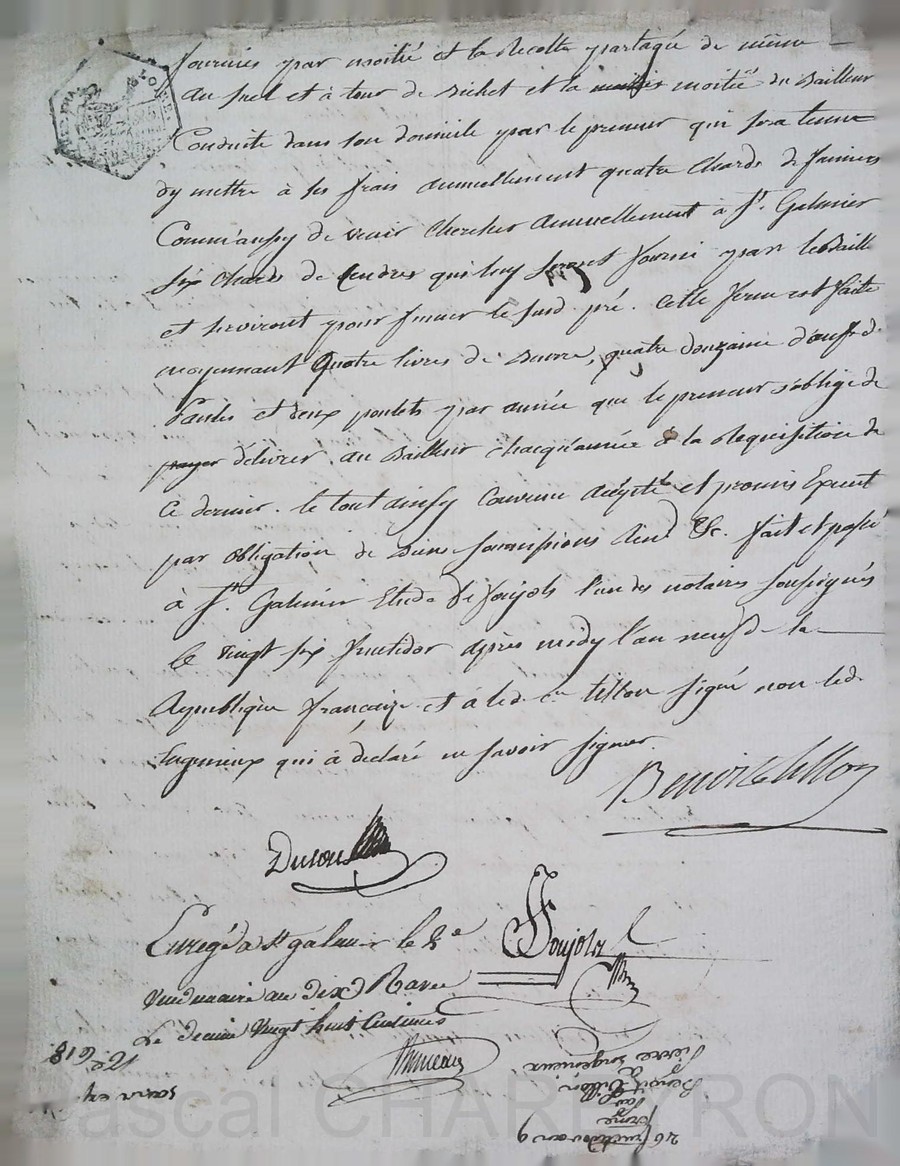 fournies par moitié et la Recolte partagée de même
au pied et à tour de Bichet et la moitié du Bailleur
Conduite dans son domicile par le preneur qui sera tenu
d'y mettre à ses frais annuellement quatre Chards de fumiers
Comm'aussy de venir chercher annuellement à St. Galmier
six Chards de Cendres qui luy seront fourni par le Baill
et serviront pour fumer le susd. pré. Cette ferme est faite
moyennant Quatre livres de Beurre, quatre douzaine d'oeufs de
Poules et deux poulets par année que le preneur s'oblige de
payer délivrer au Bailleur chacq'année à la Requisition de
Ce dernier. le tout ainsy Convenu accepté et promis
par obligation de Biens soumissions &c. fait et passé
à St. Galmier Etude de Soujols l'un des notaires soussignés
le vingt six fructidor après midy l'an neuf de la
Republique française et à led. cn. tillon signé non led.
sugnieux qui à déclaré ne savoir signer.
Benoit tillon
Soujols
Enregé à St galmier le 2e
vendemiaire an dix Reçu
Le decime vingt huit Centimes
Pierre
Benoit tillon
à
par
ferme
26 fructidor an 9
Pascal CHAREYRON